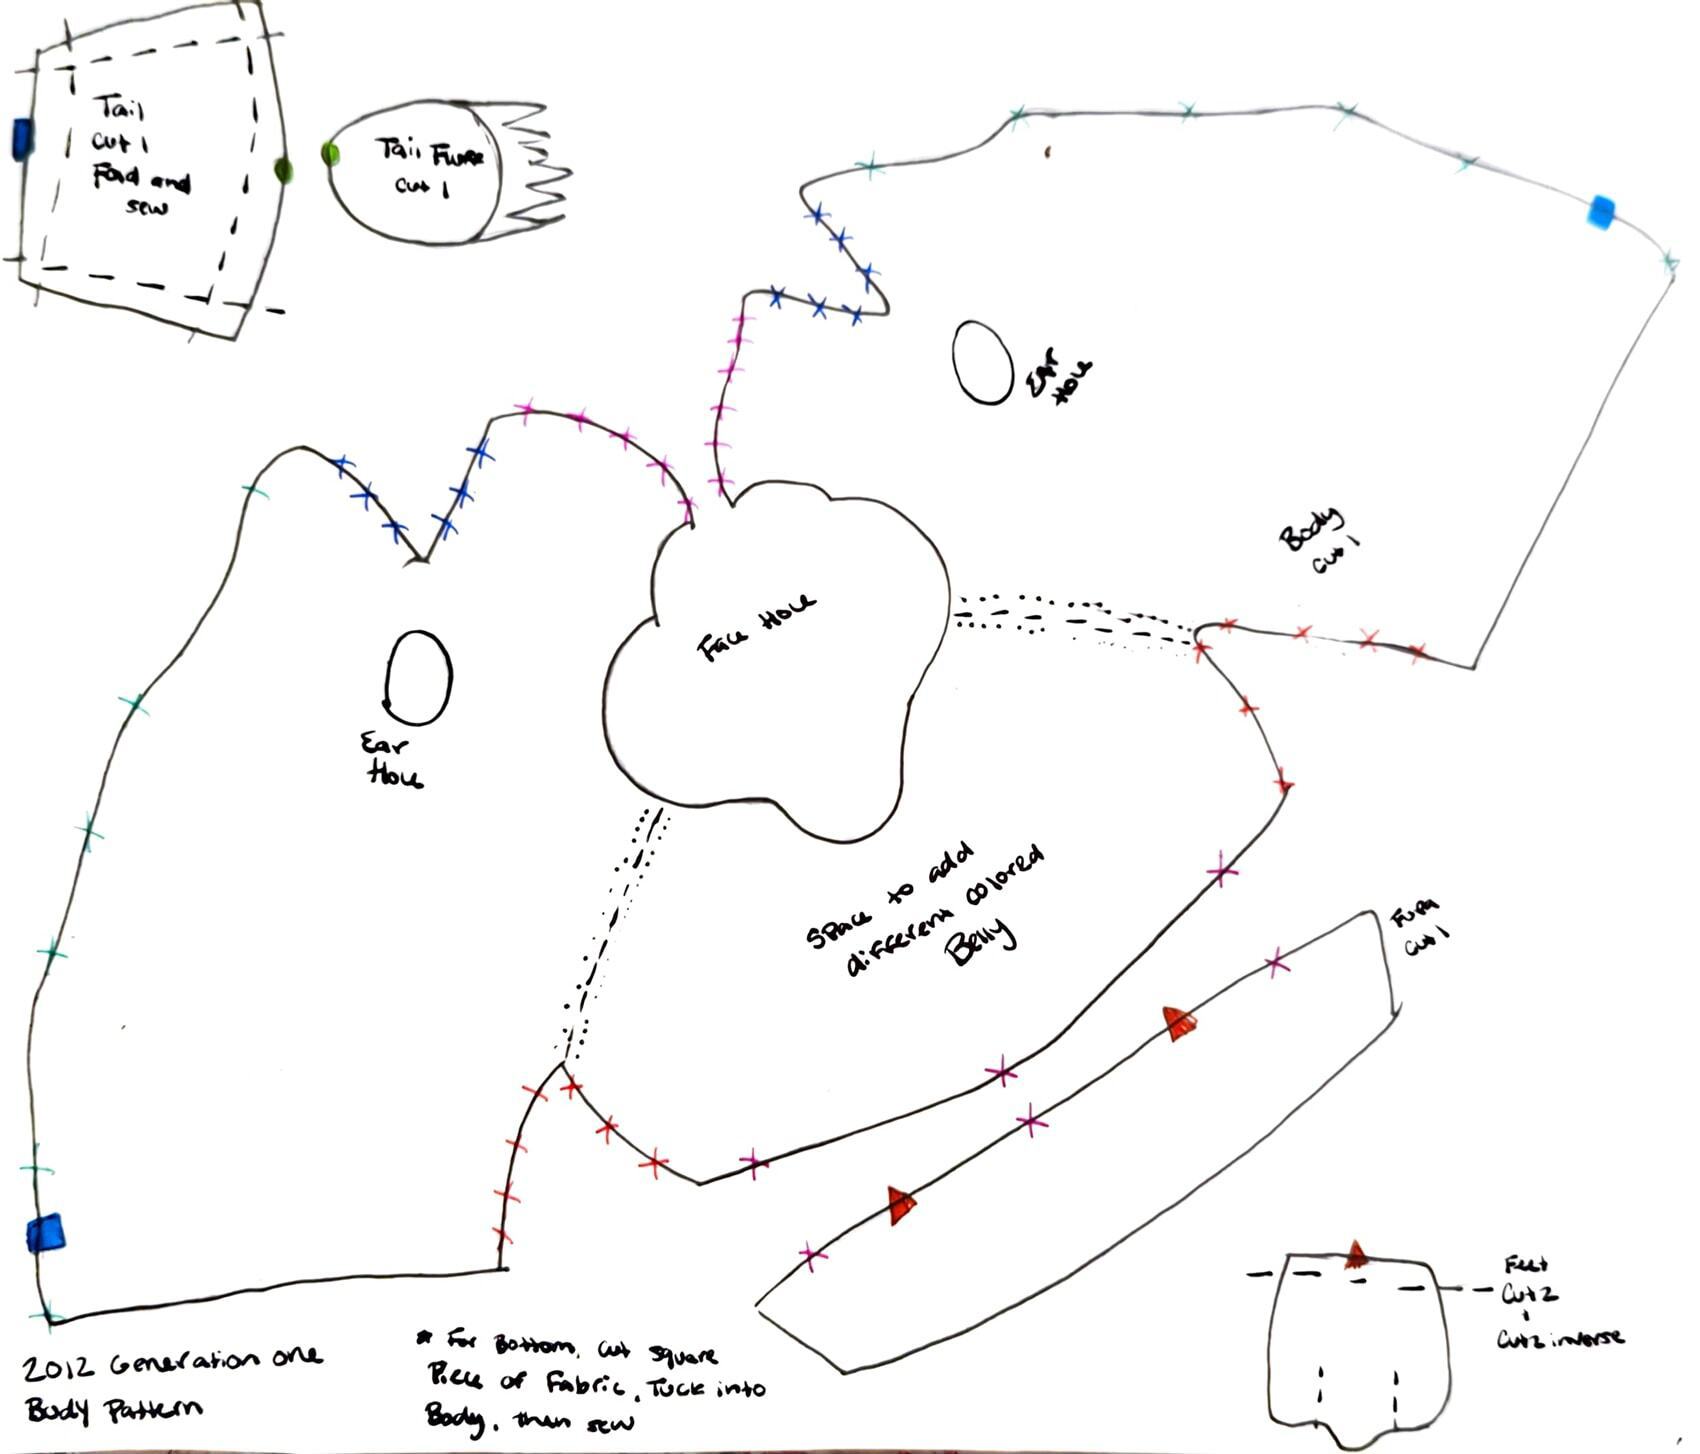 Tail
cut 1
Fold and
sew
Tail Fluff
cut 1
Ear
Hole
Body
cut 1
Face Hole
Ear
Hole
Space to add
different colored
Belly
cut 1
Feet
Cut 2
+
Cut 2 inverse
2012 Generation one
Body Pattern
* For Bottom, cut square
Piece of Fabric, Tuck into
Body, then sew